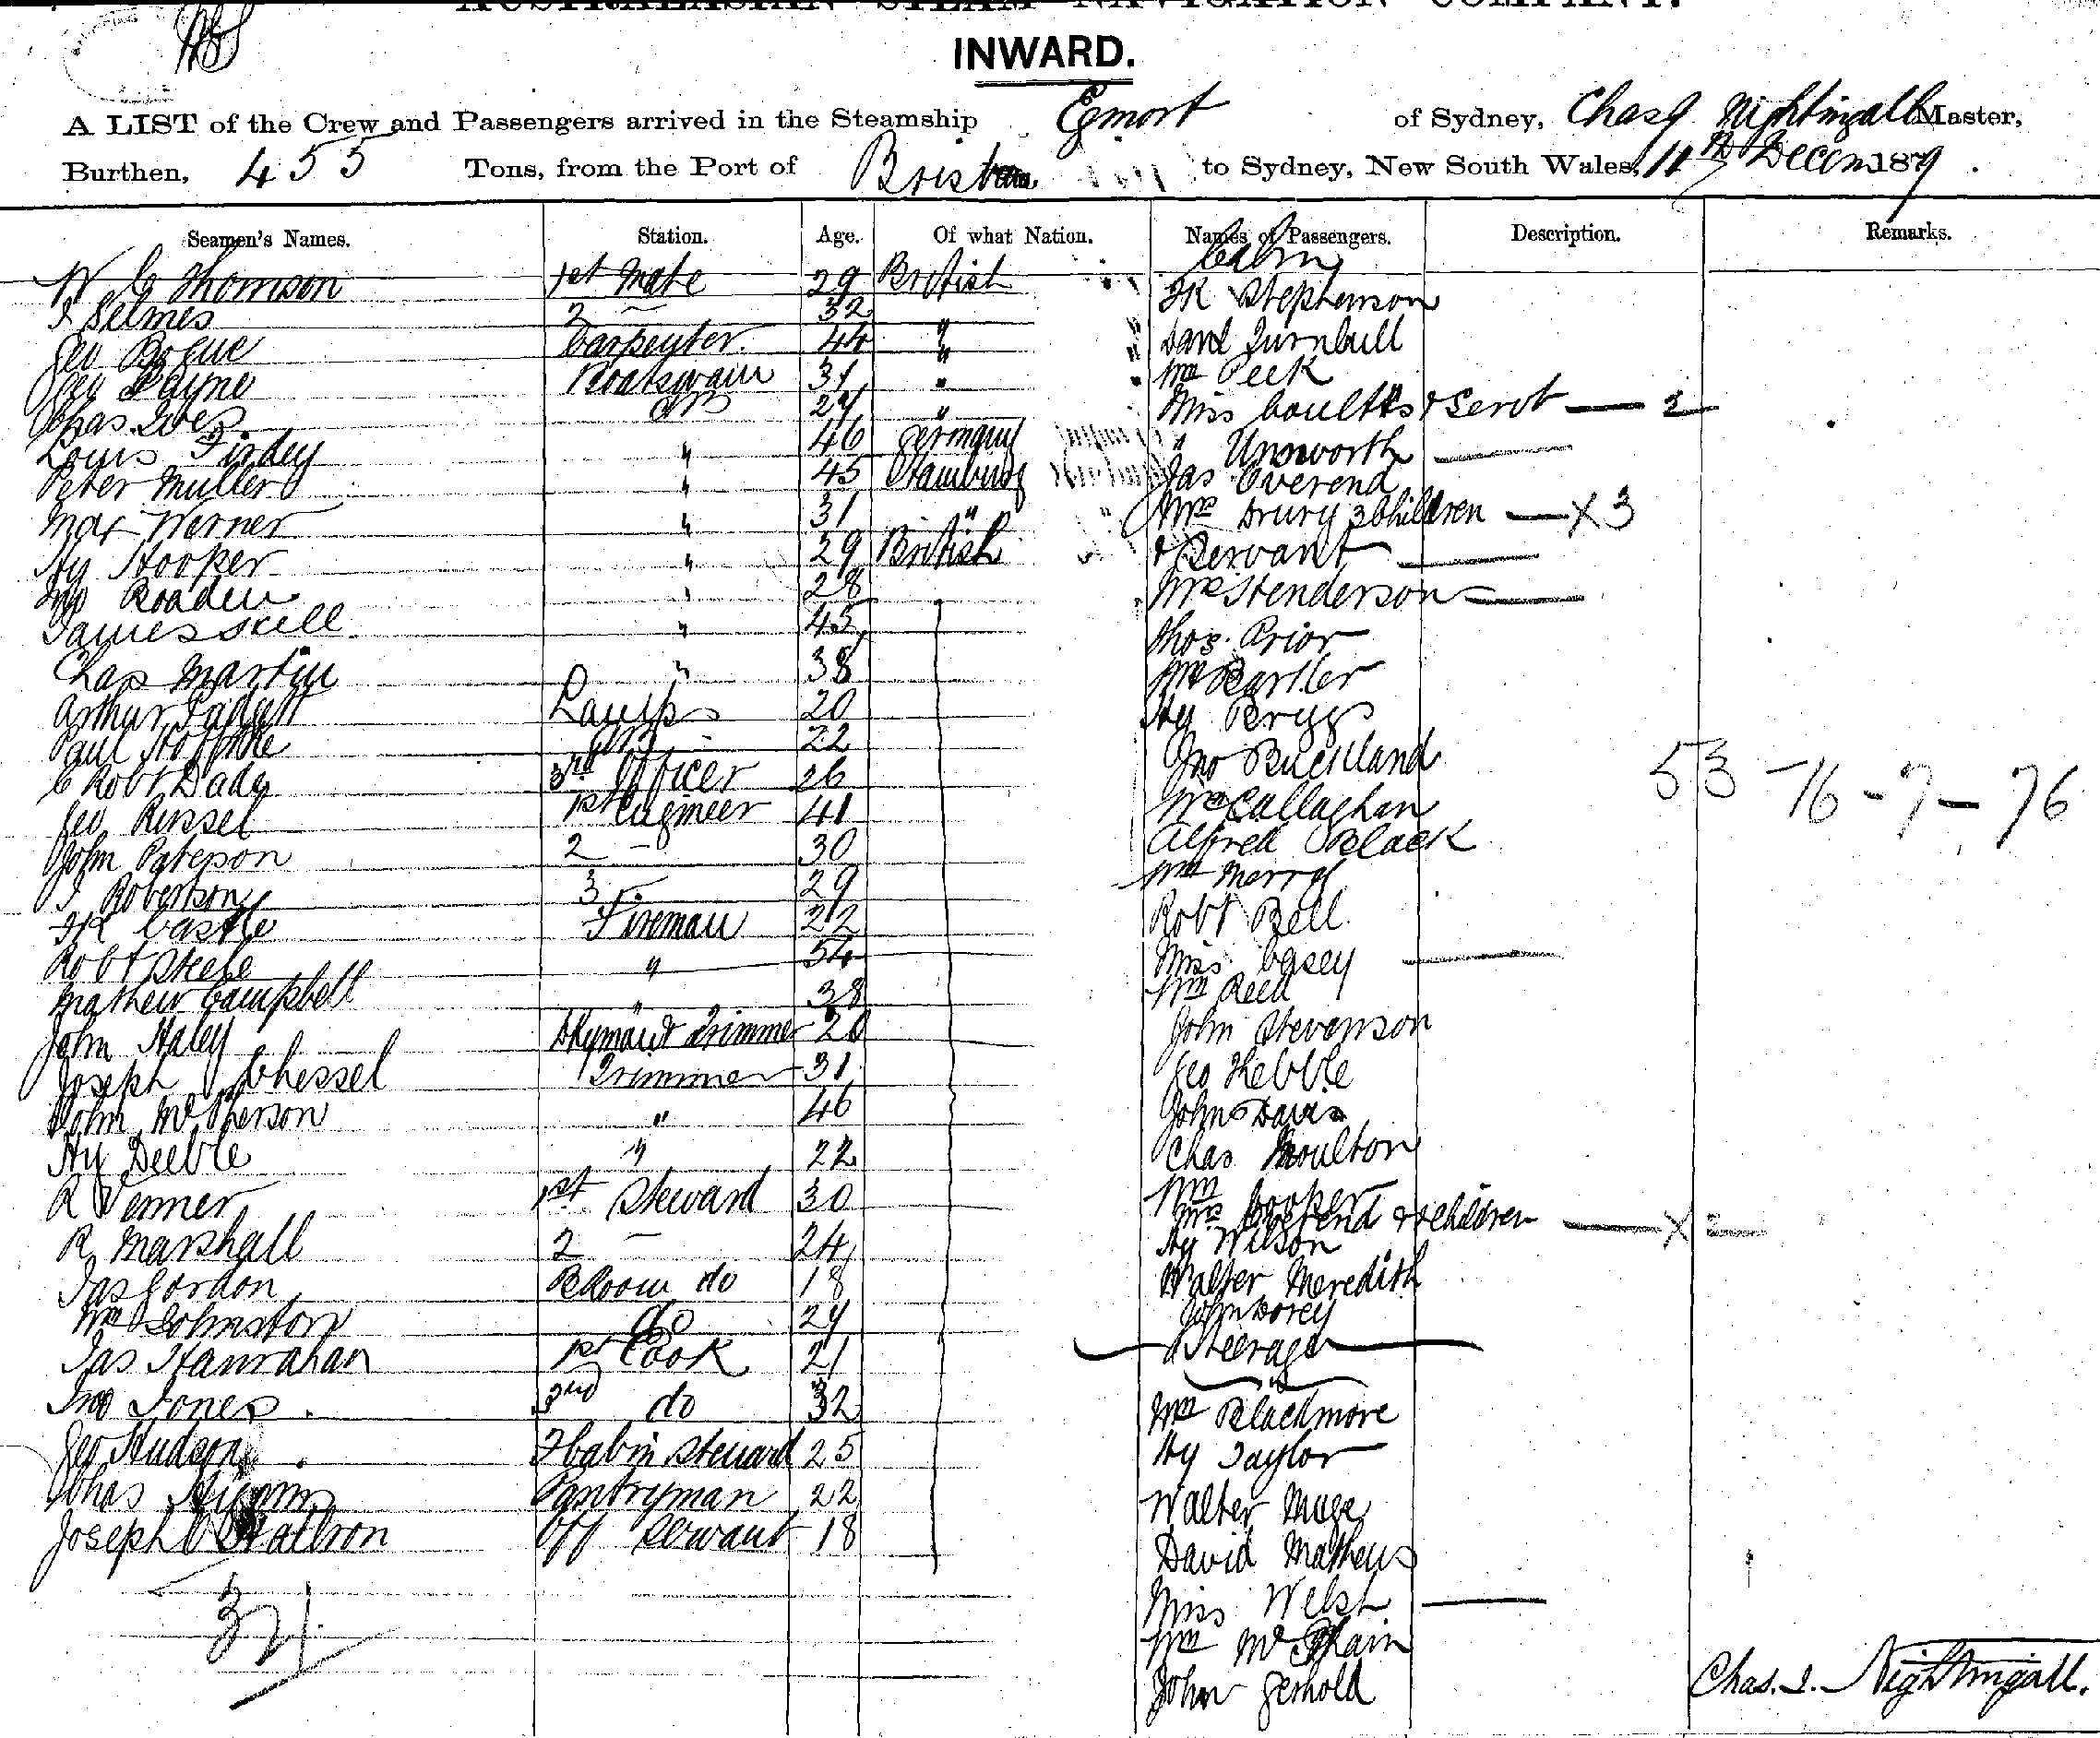 AUSTRALASIAN STEAM NAVIGATION COMPANY.
INWARD.
A LIST of the Crew and Passengers arrived in the Steamship Egmont of Sydney, Chas J Nightingall Master,
Burthen, 455 Tons, from the Port of Brisbane to Sydney, New South Wales, 11th Decem 1879.
Seamen's Names. Station. Age. Of what Nation. Names of Passengers. Description. Remarks.
Cabin
W G Thomson 1st Mate 29 British Fk Stephenson
Selmes 2 — 32
Geo Bogue Carpenter 44 " David Turnbull
Geo Payne Boatswain 31 " Wm Peek
Chas Ives AB 27 " Miss Coultts & Servt — 2
Louis 46 Germany " Unsworth —
Peter Muller " 45 Hamburg Jas Overend
Max Werner " 31 " Mrs Drury 3 Children — X 3
Hy Hooper " 29 British & Servant —
Jno Roaden " 28 Mrs Henderson —
James Skell " 45 Thos Prior
Chas Martin " 38 Wm Bartler
Arthur Lamps 20 Hy Briggs
Paul AB 22 Jno Buckland
C Robt Dady 3rd Officer 26 53 - 16 - 7 - 76
Geo Russel 1st Engineer 41 Callaghan
John Paterson 2 — 30 Alfred Black
J Robertson 3 — 29 Wm
Fk Castle Fireman 22 Robt Bell
Robt Steele " 54 Miss Casey —
Mathew Campbell " 38 Wm Reed
John Haley & Trimmer 20 John Stevenson
Joseph Chessel Trimmer 31 Geo Hebble
John McPherson " 46 John Davis
Hy Deeble " 22 Chas Moulton
R Venner 1st Steward 30 Wm Cooper
Mrs Overend & 2 Children — X 2
R Marshall 2 — 24 Hy Wilson
Jas Gordon BRoom do 18 Walter Meredith
Wm Johnston do 24 John Dorey
Jas Hanrahan 1st Cook 21 Steerage
Jno Jones 2nd do 32 Wm Blackmore
Geo Hudson F Cabin Steward 25 Hy Taylor
Chas Pantryman 22 Walter
Joseph Off Servant 18 David Mathews
Miss Welsh —
Wm
John Gerhold
Chas. J. Nightingall.